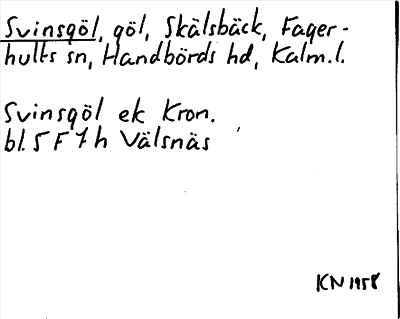 Svinsgöl, göl, Skälsbäck, Fager-
hults sn, Handbörds hd, Kalm.l.
Svinsgöl ek Kron.
bl. 5 F 7 h Välsnäs
KN 1958